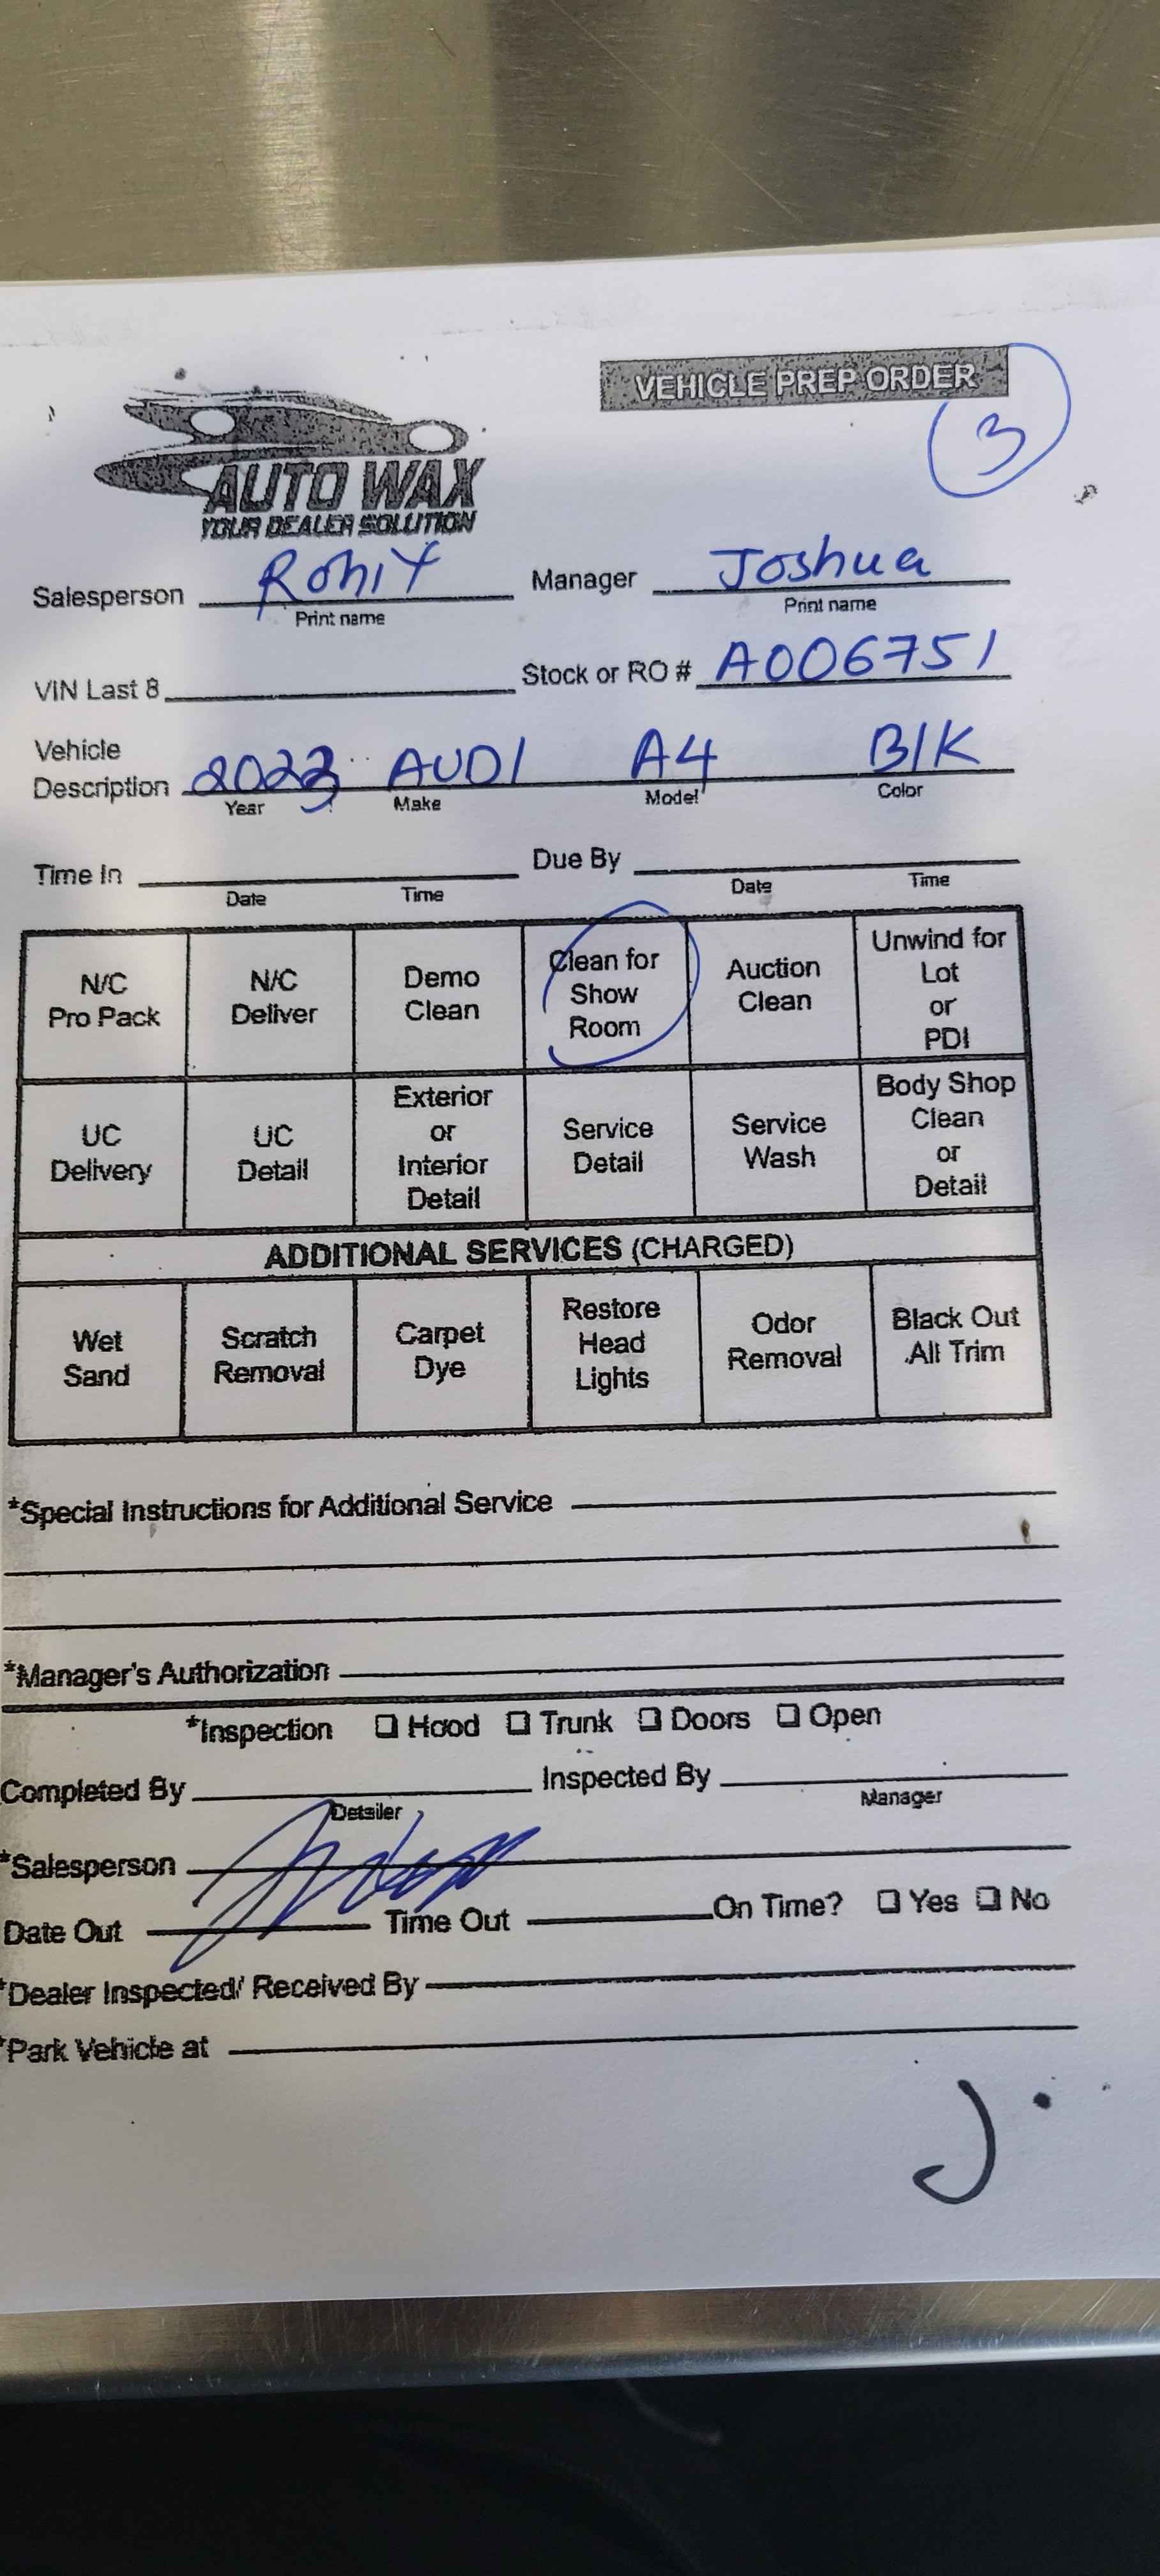 VEHICLE PREP ORDER
3
AUTO WAX
YOUR DEALER SOLUTION
Salesperson Rohit Manager Joshua
Print name Print name
VIN Last 8 Stock or RO # A006751
Vehicle
Description 2023 AUDI A4 Blk
Year Make Model Color
Time In Due By
Date Time Date Time
N/C Pro Pack N/C Deliver Demo Clean Clean for Show Room Auction Clean Unwind for Lot or PDI
UC Delivery UC Detail Exterior or Interior Detail Service Detail Service Wash Body Shop Clean or Detail
ADDITIONAL SERVICES (CHARGED)
Wet Sand Scratch Removal Carpet Dye Restore Head Lights Odor Removal Black Out All Trim
*Special Instructions for Additional Service
*Manager's Authorization
*Inspection ❑ Hood ❑ Trunk ❑ Doors ❑ Open
Completed By Inspected By
Detailer Manager
*Salesperson
Date Out Time Out On Time? ❑ Yes ❑ No
*Dealer Inspected/ Received By
*Park Vehicle at
J.